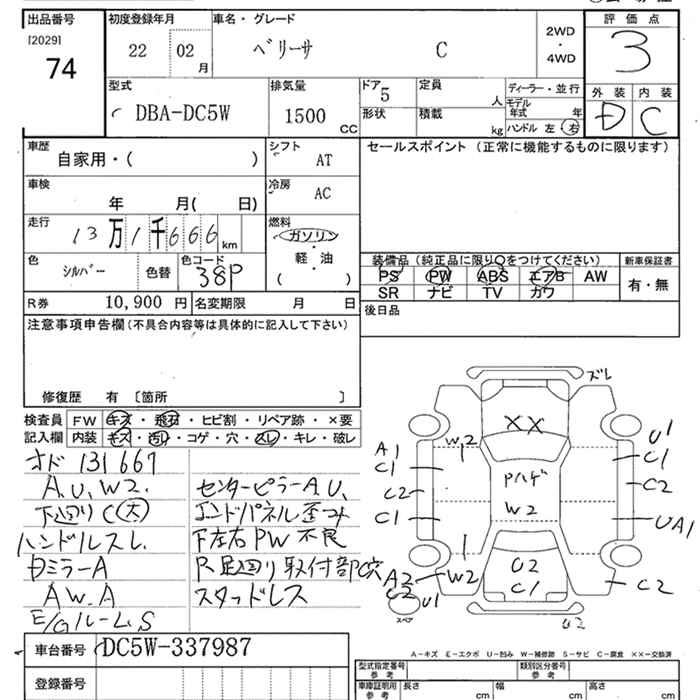 出品番号
[2029]
74
初度登録年月
22 02 月
車名・グレード
ベリーサ C
2WD
・
4WD
評価点
3
外装 内装
D C
型式
DBA-DC5W
排気量
1500 CC
ドア 5
形状
定員
人
積載
kg
ディーラー・並行
モデル年式 年
ハンドル 左・右
車歴
自家用・( )
シフト
AT
車検
年 月( 日)
冷房
AC
走行
13万1千666 km
燃料
ガソリン
・
軽・油
( )
色
シルバー
色替
色コード
38P
R券 10,900 円
名変期限 月 日
セールスポイント (正常に機能するものに限ります)
装備品 (純正品に限り○をつけてください)
PS PW ABS エアB AW
SR ナビ TV カワ
新車保証書
有・無
後日品
注意事項申告欄(不具合内容等は具体的に記入して下さい)
修復歴 有 〔箇所 〕
検査員 FW キズ・飛石・ヒビ割・リペア跡・×要
記入欄 内装 キズ・汚れ・コゲ・穴・スレ・キレ・破レ
オド 131667
A.U,W2.
下廻りC(大)
ハンドルスレ
ミラーA
AW.A
E/GルームS
センターピラーA.U,
エンドパネル歪み
下左右PW不良
R足廻り取付部C穴
スタッドレス
ズレ
XX
W2
A1
C1
C2
C1
A2
C2
U1
スペア
W2
Pハゲ
W2
U2
C1
U1
C1
C2
UA1
C2
U2
A-キズ E-エクボ U-凹み W-補修跡 S-サビ C-腐食 XX-交換済
車台番号 DC5W-337987
登録番号
型式指定番号
参考
類別区分番号
参考
車庫証明用
参考
長さ cm
幅 cm
高さ cm